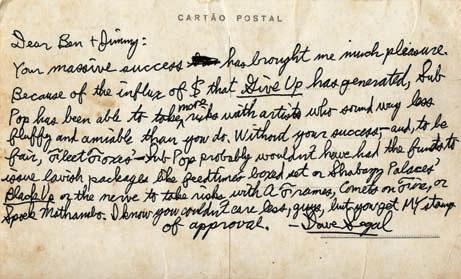 CARTÃO POSTAL
Dear Ben + Jimmy:
Your massive success has brought me much pleasure.
Because of the influx of $ that Give Up has generated, Sub
Pop has been able to take more risks with artists who sound way less
fluffy and amiable than you do. Without your success—and, to be
fair, Fleet Foxes'—Sub Pop probably wouldn't have had the funds to
issue lavish packages like feedtime's boxed set or Shabazz Palaces'
Black Up or the nerve to take risks with A Frames, Comets on Fire, or
Spoek Mathambo. I know you couldn't care less, guys, but you get MY stamp
of approval. —Dave Segal